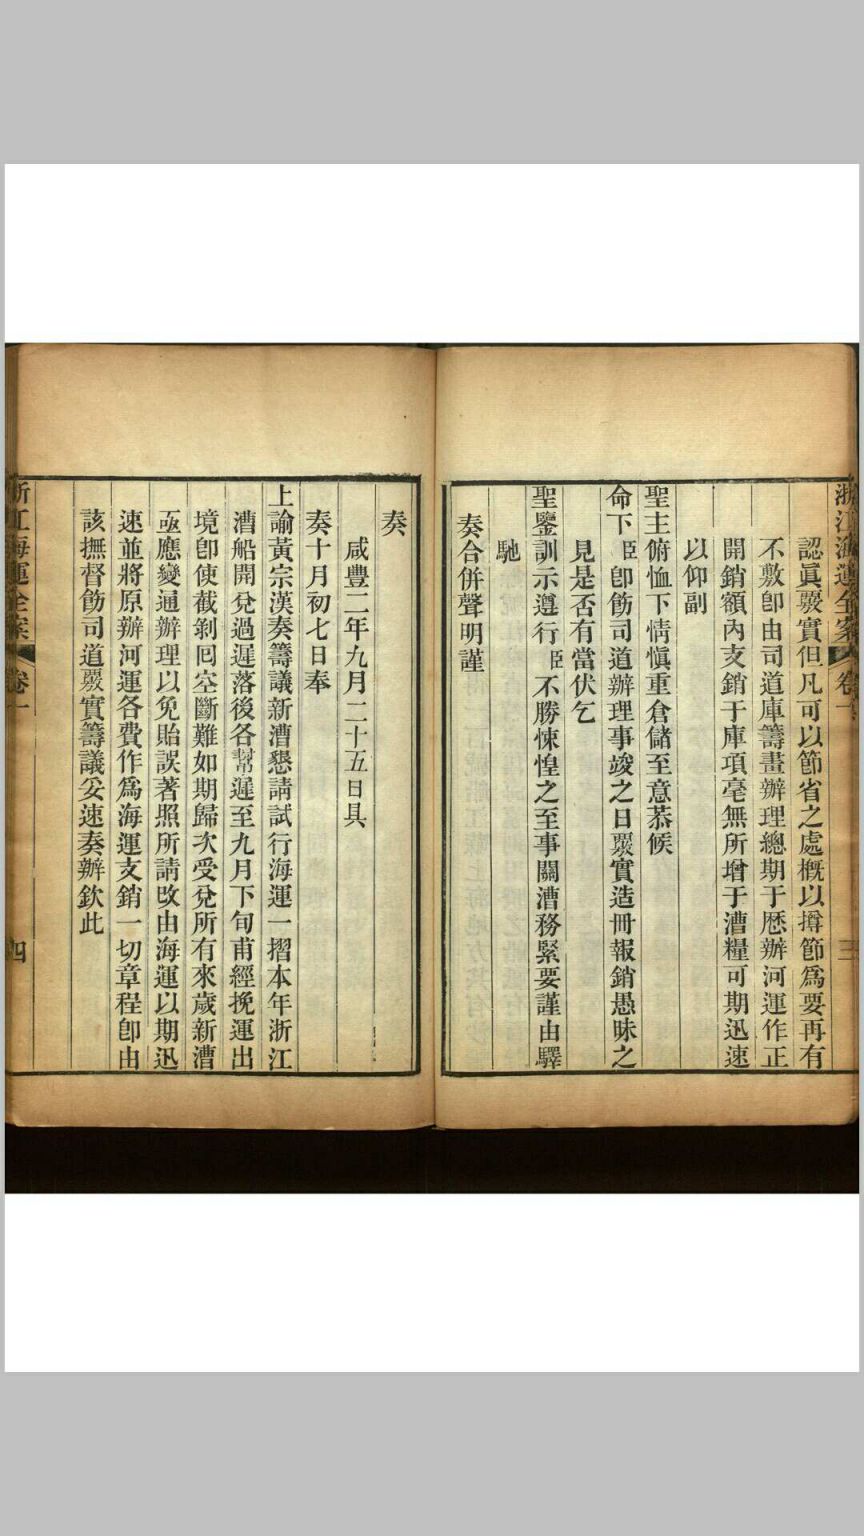 浙江海運全案
卷一
三
認眞覈實但凡可以節省之處槪以撙節爲要再有
不敷卽由司道庫籌畫辦理總期于厯辦河運作正
開銷額內支銷于庫項毫無所增于漕糧可期迅速
以仰副
聖主俯恤下情愼重倉儲至意恭候
命下臣卽飭司道辦理事竣之日覈實造冊報銷愚昧之
見是否有當伏乞
聖鑒訓示遵行臣不勝悚惶之至事關漕務緊要謹由驛
馳
奏合併聲明謹
奏
咸豐二年九月二十五日具
奏十月初七日奉
上諭黃宗漢奏籌議新漕懇請試行海運一摺本年浙江
漕船開兌過遲落後各幫遲至九月下旬甫經挽運出
境卽使截剝囘空斷難如期歸次受兌所有來歲新漕
亟應變通辦理以免貽誤著照所請改由海運以期迅
速並將原辦河運各費作爲海運支銷一切章程卽由
該撫督飭司道覈實籌議妥速奏辦欽此
浙江海運全案
卷一
四